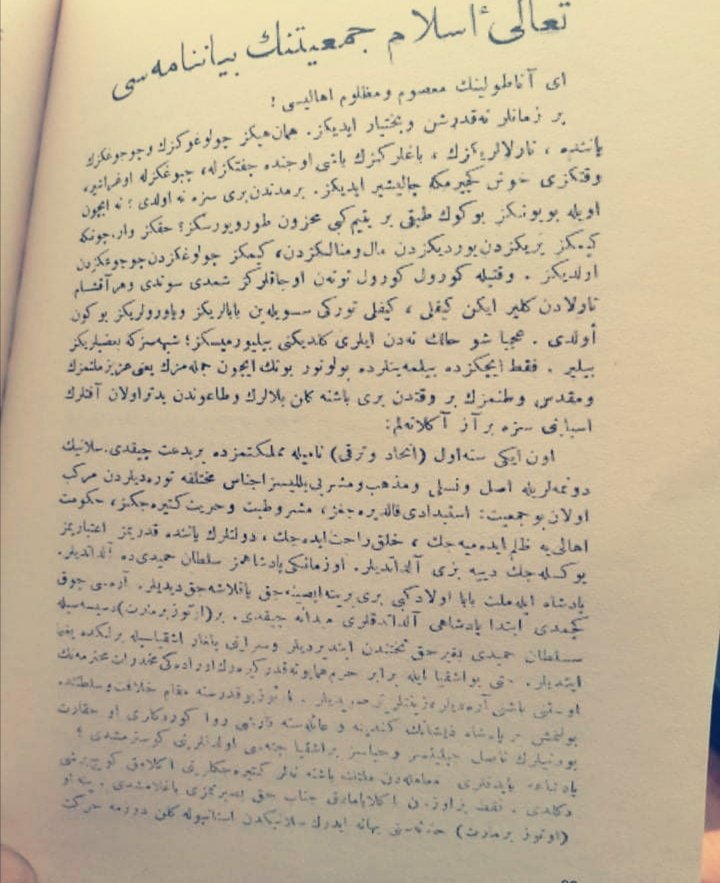 تعالیٔ اسلام جمعیتنك بیاننامه‌سی
ای آناطولینك معصوم ومظلوم اهالیسی !
بر زمانلر نه‌قدر شن وبختیار ایدیكز. همان هپكز چولوغوكزك وچوجوغكزك
یاننده ، تارلالریكزك ، باغلركزك باشی اوجنده جفتكزله، چبوغكزله اوغراشیر،
وقتكزی خوش كچیرمكه چالیشیر ایدیكز. بر مدتدن بری سزه نه اولدی ؟ نه ایچون
اویله بویونكز بوكوك طبقی بر یتیم كبی محزون طورویورسكز؟ حقكز وار. چونكه
كیمكز یریكزدن یوردیكزدن مال ومنالكزدن، كیمكز چولوغكزدن چوجوغكزدن
اولدیكز . وقتیله كورول كورول توتن اوجاقلركز شمدی سوندی وهر آقشام
تارلادن كلیر ایكن كیفلی ، كیفلی توركی سسویله‌ین بابالریكز ویاورولریكز بوكون
أولدی . عجبا شو حالك نه‌دن ایلری كلدیكنی بیلیورمیسكز؛ شبهه‌سزكه بعضیلریكز
بیلیر . فقط ایچكزده بیلمه‌ینلرده بولونور بونك ایچون جمله‌مزك یعنی عزیز ملتمزك
ومقدس وطنمزك بر وقتدن بری باشنه كلن بلالرك وطاعوندن بدتر اولان آفتلرك
اسبابنی سزه بر آز آكلاته‌لم:
اون ایكی سنه اول (اتحاد وترقی) نامیله مملكتمزده بر بدعت چیقدی. سلانیك
دونمه‌لریله اصل ونسلی ومذهب ومشربی بللیسز اجناس مختلفه توره‌دیلردن مركب
اولان بو جمعیت: استبدادی قالدیره‌جغز، مشروطیت وحریت كتیره‌جكز، حكومت
اهالی‌یه ظلم ایده‌میه‌جك ، خلق راحت ایده‌جك ، دولتلرك یاننده قدریمز اعتباریمز
یوكسله‌جك دییه بزی آلداتدیلر. اوزمانكی پادشاهمز سلطان حمیدی ده آلداتدیلر.
پادشاه ایله ملت بابا اولاد كبی بری برینه ایصینه‌جق یاقلاشه‌جق دیدیلر. آره‌سی چوق
كچمدی ابتدا پادشاهی آلداتدقلری میدانه چیقدی. بر (اوتوز بر مارت) دسیسه‌سیله
سلطان حمیدی بغیر حق تختندن ایندیردیلر وسرایی باغلر اشقیاسیله برلكده یغما
ایتدیلر. حتی بو اشقیا ایله برابر حرم همایونه قدر كیره‌رك اوراده‌كی مخدرات محترمه‌نك
اوستنی باشنی آره‌دیلر
بولنمش بر پادشاه ذیشانك كندینه و عائله‌سنه قارشی روا كوردكلری او حقارت
بودنیلرك ناصل
پادشاهه یاپدقلری معامله‌دن ملتك باشنه نه‌لر كتیره‌جكلرینی آكلامق
جناب حق
(اوتوز بر مارت) حادثه‌سنی بهانه ایدرك سلانیكدن استانبوله كلن دونمه حركت